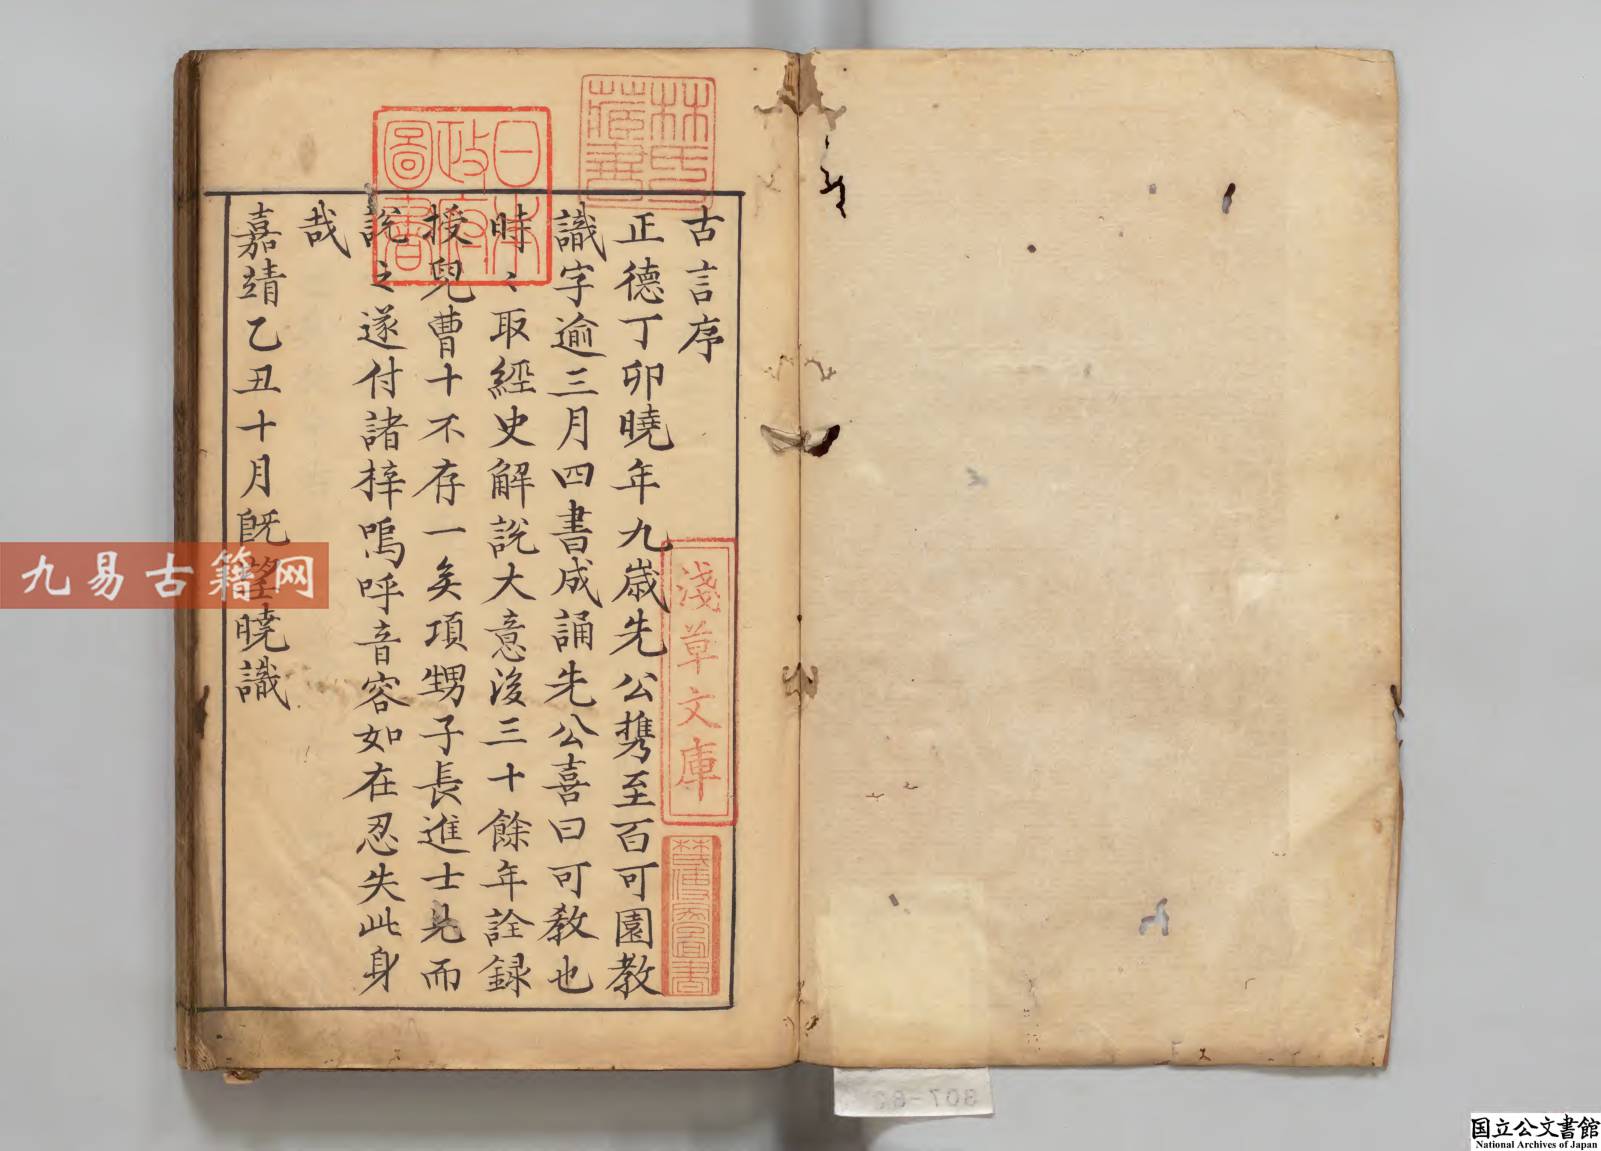 古言序
正德丁卯曉年九歲先公携至百可園教
識字逾三月四書成誦先公喜曰可教也
時〻取經史解說大意後三十餘年詮録
授兒曹十不存一矣項甥子長進士見而
說之遂付諸梓嗚呼音容如在忍失此身
哉
嘉靖乙丑十月旣望曉識
林氏藏書
日本政府圖書
淺草文庫
九易古籍网
国立公文書館
National Archives of Japan